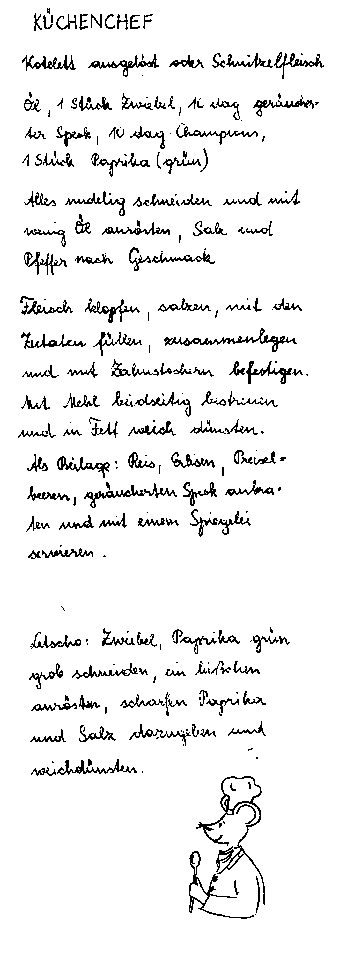 KÜCHENCHEF
Kotelett ausgelöst oder Schnitzelfleisch
Öl, 1 Stück Zwiebel, 10 dag geräucher-
ter Speck, 10 dag Champions,
1 Stück Paprika (grün)
Alles nudelig schneiden und mit
wenig Öl anrösten, Salz und
Pfeffer nach Geschmack
Fleisch klopfen, salzen, mit den
Zutaten füllen, zusammenlegen
und mit Zahnstochern befestigen.
Mit Mehl beidseitig bestreuen
und in Fett weich dünsten.
Als Beilage: Reis, Erbsen, Preisel-
beeren, geräucherten Speck anbra-
ten und mit einem Spiegelei
servieren.
Letscho: Zwiebel, Paprika grün
grob schneiden, ein bißchen
anrösten, scharfen Paprika
und Salz dazugeben und
weichdünsten.